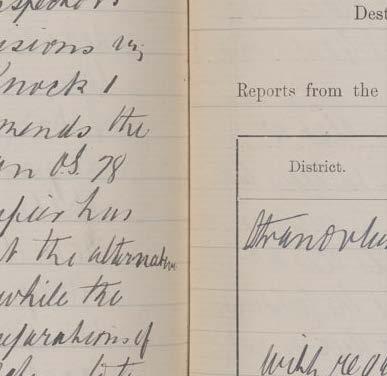 visions in
Knock 1
mends the
an O.S. 78
upier has
t the alternative
while the
eparations of
Dest
Reports from the
District.
Stranorlar
with rega